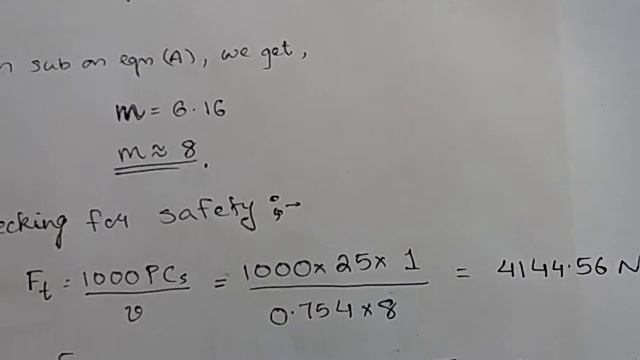 sub on eqn (A), we get,
m = 6.16
m ≈ 8.
ecking for safety :→
Ft = 1000PCs / v = 1000 × 25 × 1 / 0.754 × 8 = 4144.56 N